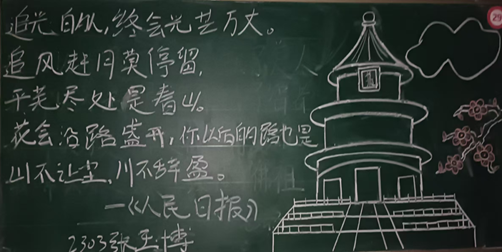 追光自人,终会光芒万丈。
追风赶月莫停留,
平芜尽处是春山。
花会沿路盛开,你以后的路也是
山不让尘,川不辞盈。
——《人民日报》
2303 博